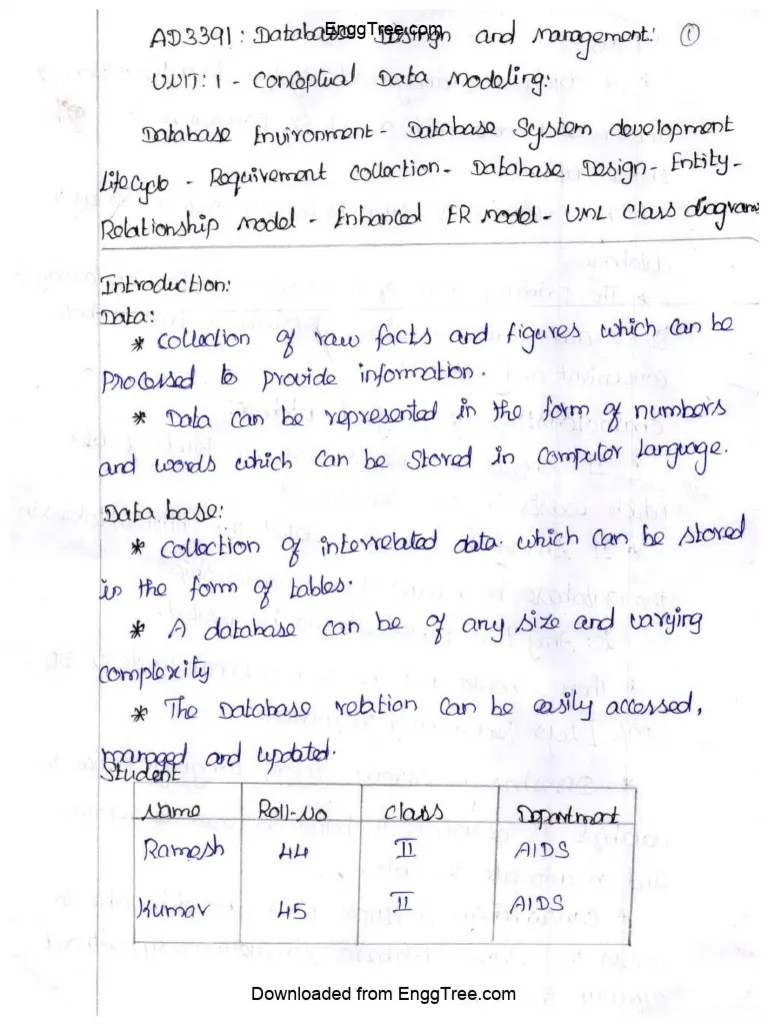 EnggTree.com
AD3391: Database Design and management: ①
UNIT: 1 - Conceptual Data modeling:
Database Environment - Database System development
Lifecycle - Requirement collection - Database Design - Entity-
Relationship model - Enhanced ER model - UML Class diagrams
Introduction:
Data:
* collection of raw facts and figures which can be
processed to provide information.
* Data can be represented in the form of numbers
and words which can be stored in computer language.
Data base:
* collection of interrelated data. which can be stored
in the form of tables.
* A database can be of any size and varying
complexity
* The Database relation can be easily accessed,
managed and updated.
Student
Name Roll-No class Department
Ramesh 44 II AIDS
Kumar 45 II AIDS
Downloaded from EnggTree.com